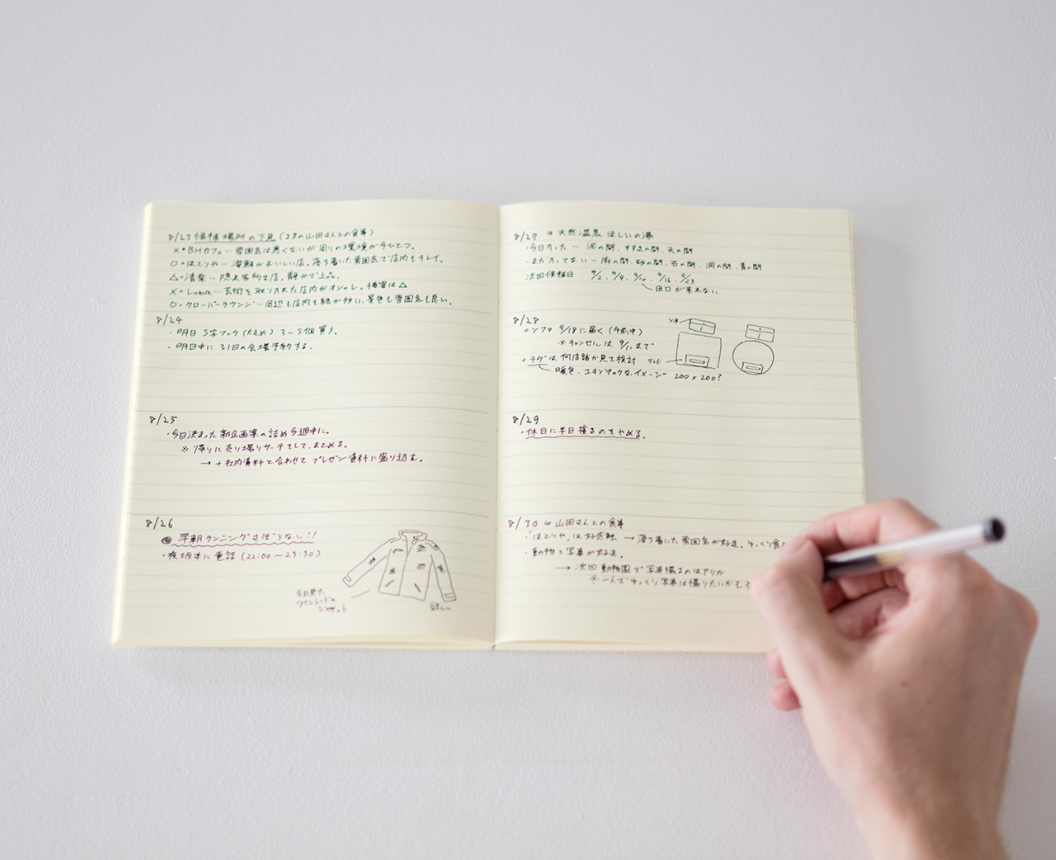 8/23 候補場所の下見 (28の山田さんとの食事)
×・BHカフェ… 雰囲気は悪くないが周りの環境が今ひとつ。
○・はとりや… 海鮮がおいしい店。落ち着いた雰囲気で店内もキレイ。
△・清楽… 隠れ家的な店。静かで上品。
×・Luana… 芸術を取り入れた店内がオシャレ。接客は△
○・クローバーラウンジ… 周辺も店内も緑が多い。景色も雰囲気も良い。
8/24
・明日 S字フック (大きめ) 3〜5個買う。
・明日中に 31日の会場予約する。
8/25
・今日決まった新企画案の詰め今週中に。
※帰りに売り場リサーチをして、まとめる。
→ + 社内資料と合わせて プレゼン資料に盛り込む。
8/26
早朝ランニングさぼりなし!!
・夜 坂本に電話 (22:00〜23:30)
今日見た
ジャケット
欲しい
8/27 天然温泉 ほしいの湯
・今日入った 〜 洞の間、すすきの間、天の間
・まだ入ってない 〜 雨の間、砂の間、石の間、洞の間、青の間
次回候補日 9/2、9/4、9/10、9/16、9/23
田口が来れない
8/28
ソファ 9/18に届く (午前中)
※キャンセルは 9/11まで
・ラグは 何店舗か見て検討
暖色、エキゾチックなイメージ 200×200?
ソファ
テレビ
8/29
・休日に半日寝るのをやめる。
8/30 山田さんとの食事
・「はとりや」は好感触 → 落ち着いた雰囲気が好き。ゆっくり食べ
・動物と写真が好き。
→ 次回 動物園で写真撮るのはアリか
一人でゆっくり写真は撮りたいかも?